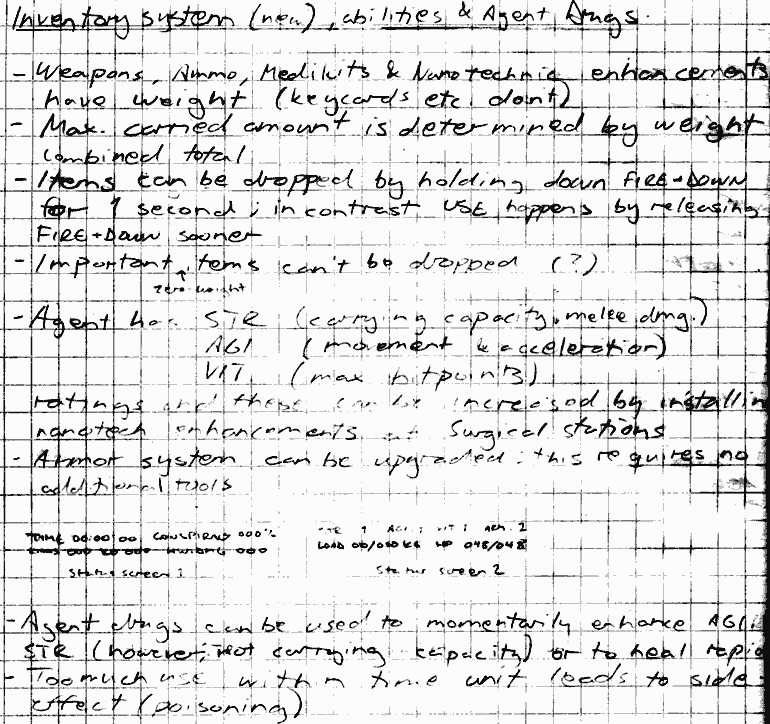 Inventory system (new), abilities & Agent Drugs.
- Weapons, Ammo, Medikits & Nanotechnic enhancements
have weight (keycards etc. dont)
- Max. carried amount is determined by weight
combined total
- Items can be dropped by holding down FIRE+DOWN
for 1 second; in contrast USE happens by releasing
FIRE+DOWN sooner
- Important items can't be dropped (?)
zero weight
- Agent has STR (carrying capacity, melee dmg.)
AGI (movement & acceleration)
VIT (max hitpoints)
ratings and these can be increased by installin
nanotech enhancements at Surgical stations
- Armor system can be upgraded: this requires no
additional tools
TIME 00:00:00 CONSPIRACY 000%
STR 1 AGI 1 VIT 1 ARM. 2
LOAD 00/000 KG HP 048/048
Status screen 1
Status screen 2
- Agent drugs can be used to momentarily enhance AGI,
STR (however, not carrying capacity) or to heal rapid
- Too much use within time unit leads to side
effect (poisoning)